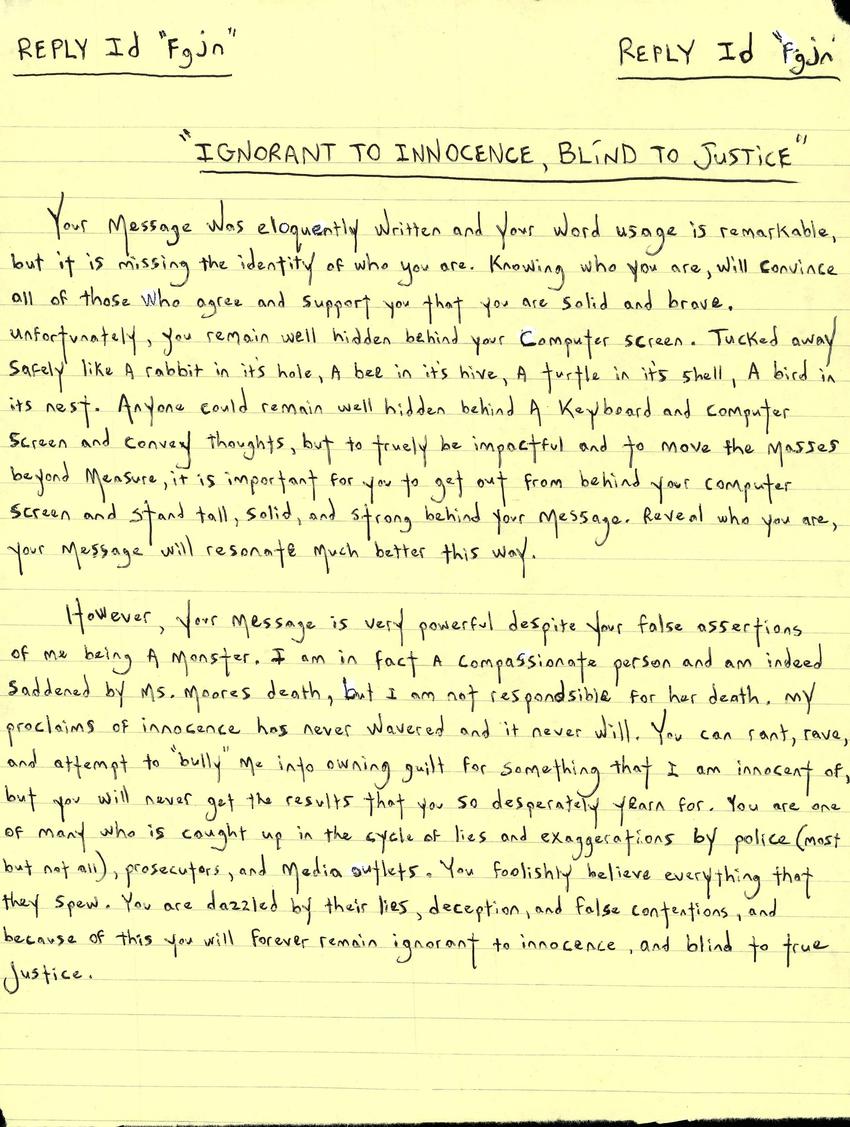 REPLY Id "Fgjn" REPLY Id "Fgjn"
"IGNORANT TO INNOCENCE, BLIND TO JUSTICE"
Your Message was eloquently written and your word usage is remarkable,
but it is missing the identity of who you are. Knowing who you are, will convince
all of those who agree and support you that you are solid and brave.
unfortunately, you remain well hidden behind your Computer screen. Tucked away
safely like A rabbit in it's hole, A bee in it's hive, A turtle in it's shell, A bird in
its nest. Anyone could remain well hidden behind A Keyboard and computer
screen and convey thoughts, but to truely be impactful and to move the masses
beyond measure, it is important for you to get out from behind your computer
screen and stand tall, solid, and strong behind your message. Reveal who you are,
your message will resonate much better this way.
However, your message is very powerful despite your false assertions
of me being A Monster. I am in fact A compassionate person and am indeed
saddened by Ms. Moores death, but I am not respondsible for her death. My
proclaims of innocence has never wavered and it never will. You can rant, rave,
and attempt to "bully" me into owning guilt for something that I am innocent of,
but you will never get the results that you so desperately yearn for. You are one
of many who is caught up in the cycle of lies and exaggerations by police (most
but not all), prosecutors, and Media outlets. You foolishly believe everything that
they spew. You are dazzled by their lies, deception, and false contentions, and
because of this you will forever remain ignorant to innocence, and blind to true
justice.